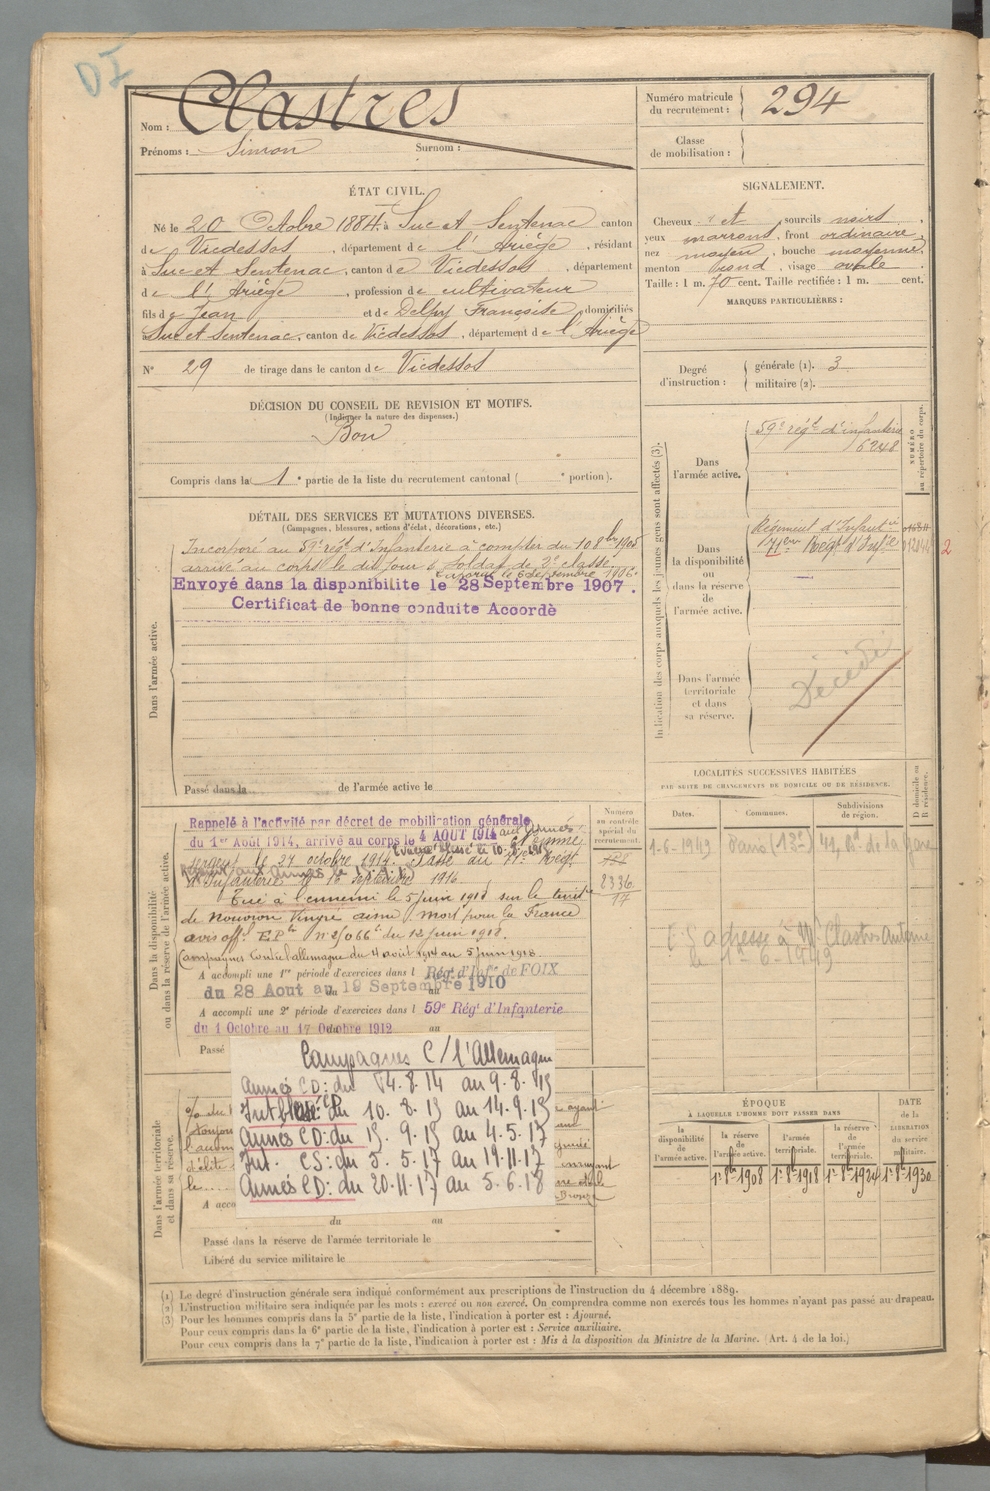 DI
Nom : Clastres
Prénoms : Simon Surnom :
Numéro matricule du recrutement : 294
Classe de mobilisation :
ÉTAT CIVIL.
Né le 20 Octobre 1884 à Suc et Sentenac canton
de Vicdessos, département de l'Ariège, résidant
à Suc et Sentenac, canton de Vicdessos, département
de l'Ariège, profession de cultivateur
fils de Jean et de Delpy Françoise, domiciliés
à Suc et Sentenac, canton de Vicdessos, département de l'Ariège
N° 29 de tirage dans le canton de Vicdessos
SIGNALEMENT.
Cheveux et sourcils noirs,
yeux marrons, front ordinaire,
nez moyen, bouche moyenne,
menton rond, visage ovale.
Taille : 1 m. 70 cent. Taille rectifiée : 1 m. cent.
MARQUES PARTICULIÈRES :
Degré d'instruction :
générale (1). 3
militaire (2).
DÉCISION DU CONSEIL DE REVISION ET MOTIFS.
(Indiquer la nature des dispenses.)
Bon
Compris dans la 1e partie de la liste du recrutement cantonal ( e portion).
DÉTAIL DES SERVICES ET MUTATIONS DIVERSES.
(Campagnes, blessures, actions d'éclat, décorations, etc.)
Dans l'armée active.
Incorporé au 59e régt d'Infanterie à compter du 10 8bre 1905
arrivé au corps le dit jour & soldat de 2e classe.
Caporal le 6 septembre 1906.
Envoyé dans la disponibilite le 28 Septembre 1907.
Certificat de bonne conduite Accordé
Passé dans la de l'armée active le
Indication des corps auxquels les jeunes gens sont affectés (3).
NUMÉRO au répertoire du corps.
Dans l'armée active.
59e régt d'infanterie
6248
Dans la disponibilité ou dans la réserve de l'armée active.
Régiment d'Infantie
171eme Régt d'Infie
2
Dans l'armée territoriale et dans sa réserve.
Décédé
LOCALITÉS SUCCESSIVES HABITÉES
PAR SUITE DE CHANGEMENTS DE DOMICILE OU DE RÉSIDENCE.
D domicile ou R résidence.
Dates. Communes. Subdivisions de région.
1-6-1949 Paris (13e) 41, Bd de la Gare
adresse à Mr Clastres Antoine
le 1-6-1949
Dans la disponibilité ou dans la réserve de l'armée active.
Numéro au contrôle spécial du recrutement.
2336
17
Rappelé à l'activité par décret de mobilisation générale
du 1er Août 1914, arrivé au corps le 4 AOUT 1914 aux Armées. Nommé
sergent le 27 octobre 1914. Passé au 171e Régt
d'Infanterie le 16 septembre 1916
Tué à l'ennemi le 5 juin 1918 sur le territre
de Nouvron Vingré aisne, mort pour la France
avis off. E.Ple n° 2/066 du 12 juin 1918.
Campagnes Contre l'allemagne du 4 août 1914 au 5 juin 1918.
A accompli une 1re période d'exercices dans l Régt d'Infie de FOIX
du 28 Aout au 19 Septembre 1910
A accompli une 2e période d'exercices dans l 59e Régt d'Infanterie
du 1 Octobre au 17 Octobre 1912 au
Passé
Campagnes C/ l'Allemagne
Armées CD: du 4.8.14 au 9.8.15
Int blessé: du 10.8.15 au 14.9.15
Armées CD: du 15.9.15 au 4.5.17
Int. CS: du 5.5.17 au 19.11.17
Armées CD: du 20.11.17 au 5.6.18
Dans l'armée territoriale et dans sa réserve.
A acco
du au
Passé dans la réserve de l'armée territoriale le
Libéré du service militaire le
ÉPOQUE
À LAQUELLE L'HOMME DOIT PASSER DANS
DATE de la LIBÉRATION du service militaire.
la disponibilité de l'armée active.
la réserve de l'armée active.
l'armée territoriale.
la réserve de l'armée territoriale.
1er 8bre 1908 1er 8bre 1918 1er 8bre 1924 1er 8bre 1930
(1) Le degré d'instruction générale sera indiqué conformément aux prescriptions de l'instruction du 4 décembre 1889.
(2) L'instruction militaire sera indiquée par les mots : exercé ou non exercé. On comprendra comme non exercés tous les hommes n'ayant pas passé au drapeau.
(3) Pour les hommes compris dans la 5e partie de la liste, l'indication à porter est : Ajourné.
Pour ceux compris dans la 6e partie de la liste, l'indication à porter est : Service auxiliaire.
Pour ceux compris dans la 7e partie de la liste, l'indication à porter est : Mis à la disposition du Ministre de la Marine. (Art. 4 de la loi.)